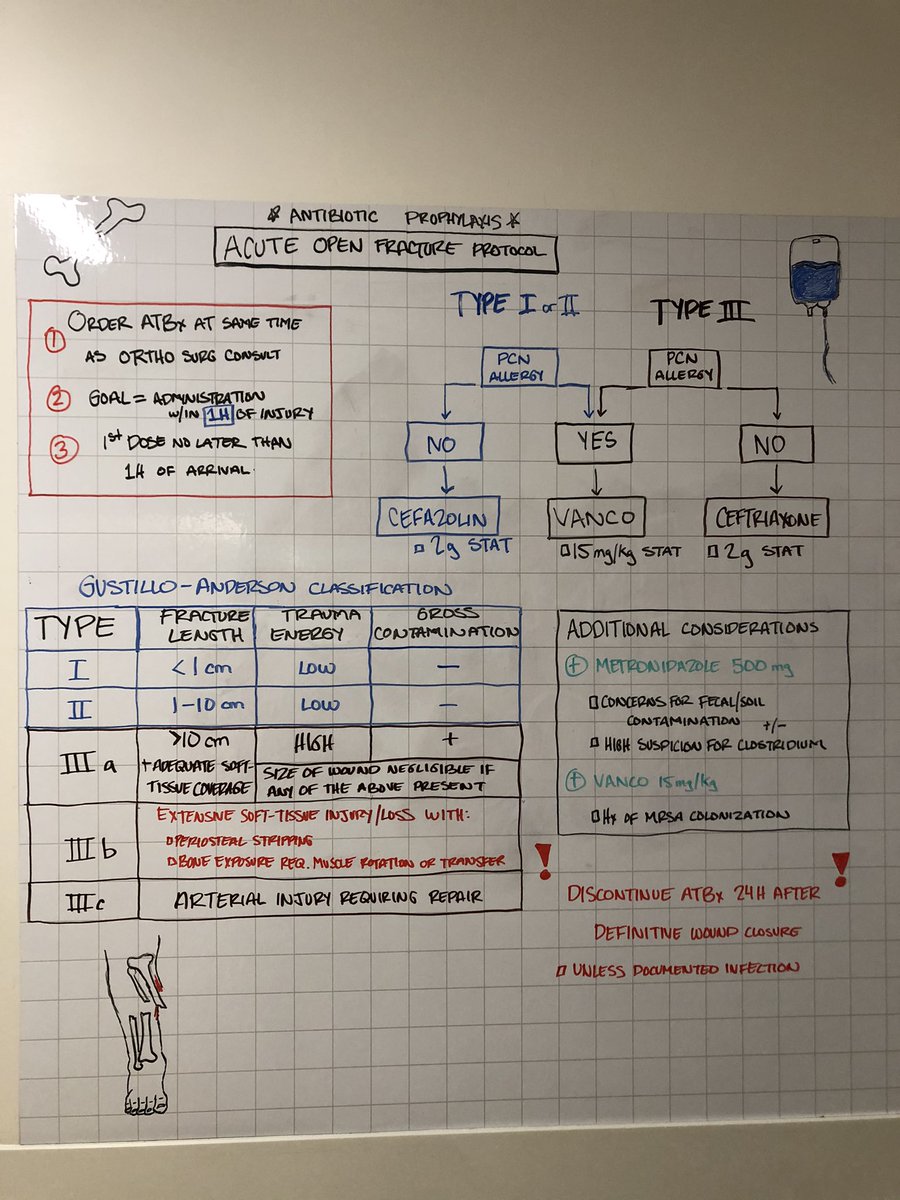 * ANTIBIOTIC PROPHYLAXIS *
ACUTE OPEN FRACTURE PROTOCOL
① ORDER ATBx AT SAME TIME
AS ORTHO SURG CONSULT
② GOAL = ADMINISTRATION
W/IN 1H OF INJURY
③ 1st DOSE NO LATER THAN
1H OF ARRIVAL.
TYPE I or II
TYPE III
PCN
ALLERGY
PCN
ALLERGY
NO
YES
NO
CEFAZOLIN
VANCO
CEFTRIAXONE
□ 2g STAT
□ 15mg/kg STAT
□ 2g STAT
GUSTILLO-ANDERSON CLASSIFICATION
TYPE
FRACTURE
LENGTH
TRAUMA
ENERGY
GROSS
CONTAMINATION
I
<1 cm
LOW
—
II
1-10 cm
LOW
—
III a
>10 cm
+ ADEQUATE SOFT-
TISSUE COVERAGE
HIGH
+
SIZE OF WOUND NEGLIGIBLE IF
ANY OF THE ABOVE PRESENT
III b
EXTENSIVE SOFT-TISSUE INJURY/LOSS WITH:
□ PERIOSTEAL STRIPPING
□ BONE EXPOSURE REQ. MUSCLE ROTATION OR TRANSFER
III c
ARTERIAL INJURY REQUIRING REPAIR
ADDITIONAL CONSIDERATIONS
⊕ METRONIDAZOLE 500 mg
□ CONCERNS FOR FECAL/SOIL
CONTAMINATION +/-
□ HIGH SUSPICION FOR CLOSTRIDIUM
⊕ VANCO 15mg/kg
□ Hx OF MRSA COLONIZATION
! !
DISCONTINUE ATBx 24H AFTER
DEFINITIVE WOUND CLOSURE
□ UNLESS DOCUMENTED INFECTION